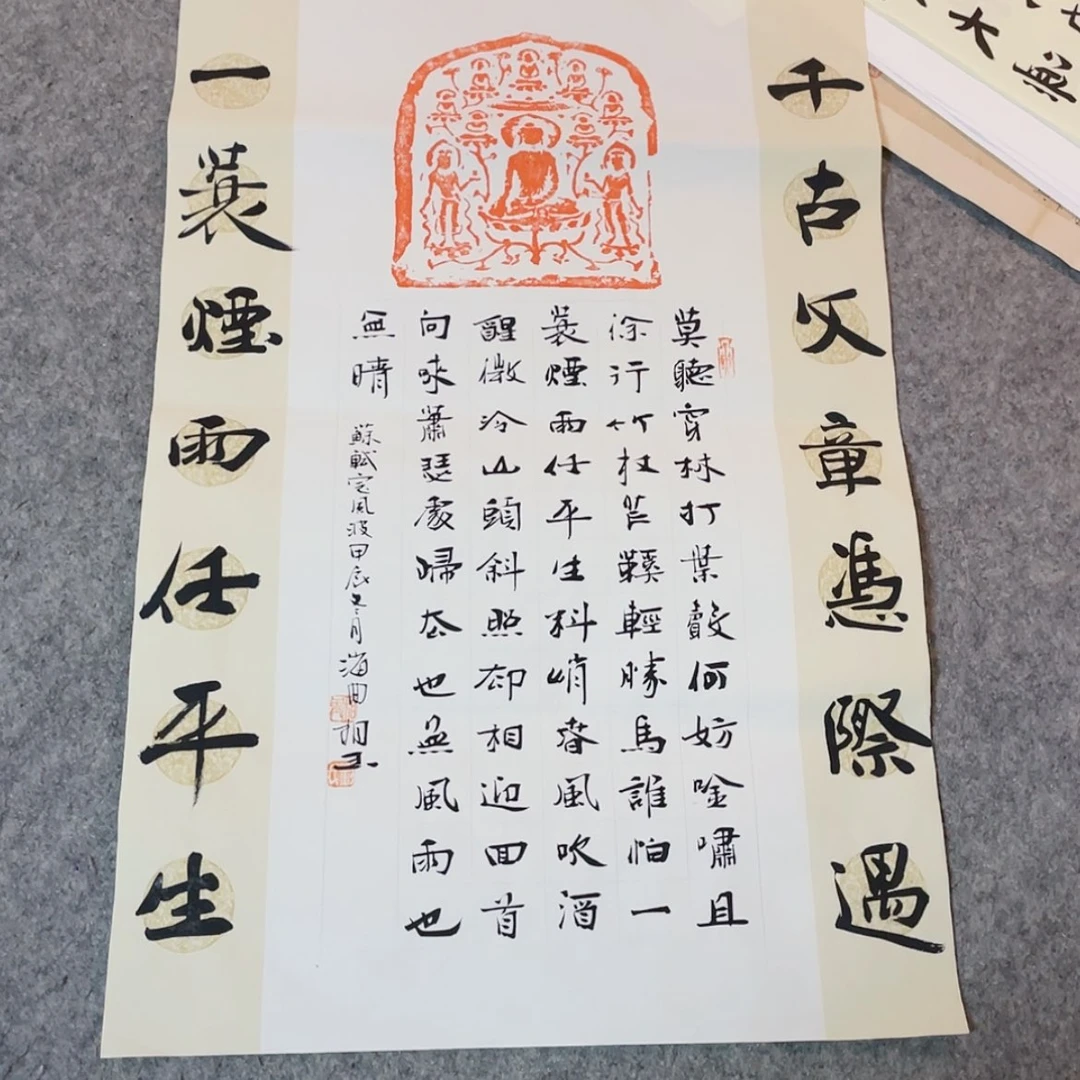 千古文章憑際遇
莫聽穿林打葉聲何妨唫嘯且
徐行竹杖芒鞵輕勝馬誰怕一
蓑煙雨任平生料峭春風吹酒
醒微冷山頭斜照却相迎回首
向來蕭瑟處歸去也無風雨也
無晴
蘇軾定風波甲辰冬月海曲
一蓑煙雨任平生
無
大